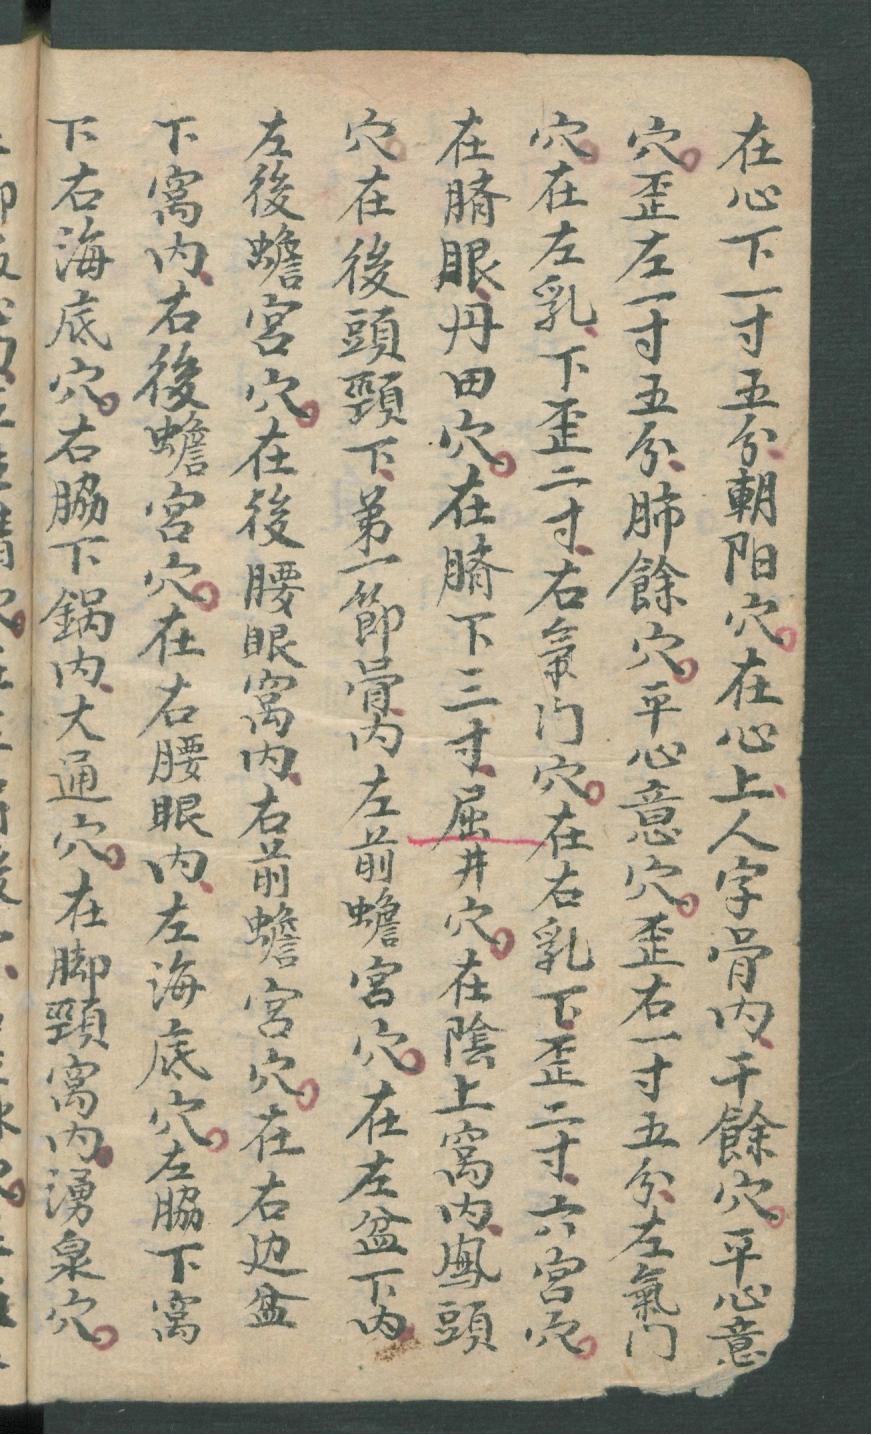 在心下一寸五分朝阳穴在心上人字骨内干餘穴平心意
穴歪左一寸五分肺餘穴平心意穴歪右一寸五分左氣门
穴在左乳下歪二寸右氣门穴在右乳下歪二寸六宫穴
在臍眼丹田穴在臍下三寸屈井穴在陰上窩内鳳頭
穴在後頭頸下第一節骨内左前蟾宫穴在左盆下内
左後蟾宫穴在後腰眼窩内右前蟾宫穴在右边盆
下窩内右後蟾宫穴在右腰眼内左海底穴左脇下窩
下右海底穴右脇下鍋内大通穴在脚頸窩内湧泉穴